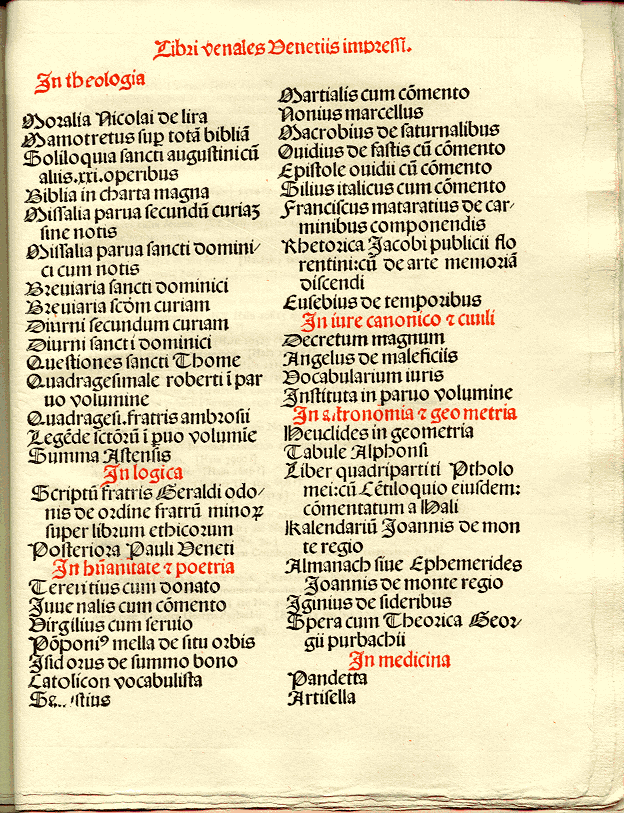 Libri venales Venetiis impreſſi.
In theologia
Moralia Nicolai de lira
Mamotretus sup̲ totā bibliā
Soliloquia sancti augustini cū
aliis.xxi.operibus
Biblia in charta magna
Miſſalia parua secundū curiaꝫ
sine notis
Miſſalia parua sancti domini⸗
ci cum notis
Breuiaria sancti dominici
Breuiaria scd̄m curiam
Diurni secundum curiam
Diurni sancti dominici
Questiones sancti Thome
Quadragesimale roberti ī par
uo volumine
Quadragesi.fratris ambrosii
Legēde sctōrū ī p̲uo volumīe
Summa Astensis
In logica
Scriptū fratris Geraldi odo⸗
nis de ordine fratrū minoꝝ
super librum ethicorum
Posteriora Pauli Veneti
In hūanitate ⁊ poetria
Terentius cum donato
Juuenalis cum cōmento
Virgilius cum seruio
Pōponiꝰ mella de situ orbis
Isidorus de summo bono
Catolicon vocabulista
Martialis cum cōmento
Nonius marcellus
Macrobius de saturnalibus
Ouidius de fastis cū cōmento
Epistole ouidii cū cōmento
Silius italicus cum cōmento
Franciscus mataratius de car⸗
minibus componendis
Rhetorica Jacobi publicii flo
rentini:cū de arte memoriā
discendi
Eusebius de temporibus
In iure canonico ⁊ ciuili
Decretum magnum
Angelus de maleficiis
Vocabularium iuris
Instituta in paruo volumine
In astronomia ⁊ geometria
Heuclides in geometria
Tabule Alphonsi
Liber quadripartiti Ptholo
mei:cū Cētiloquio eiusdem:
cōmentatum a Hali
Kalendariū Joannis de mon
te regio
Almanach siue Ephemerides
Joannis de monte regio
Iginius de sideribus
Spera cum Theorica Geor⸗
gii purbachii
In medicina
Pandetta
Artisella